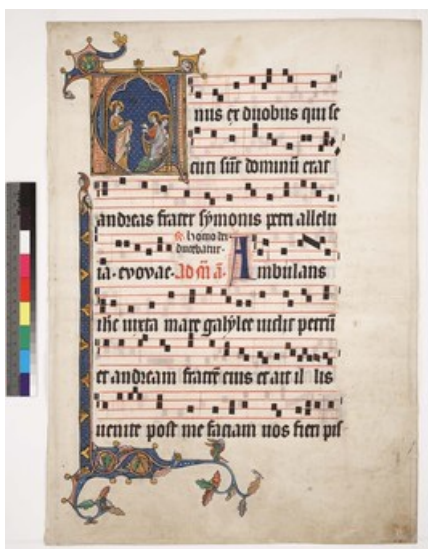 nus ex duobus qui se
cuti sūt dominū erat
andreas frater symonis petri allelu
ꝶ. homo dei
ducebatur.
ia. evovae. ad m̄ a. Ambulans
ihc iuxta mare galylee uidit petrū
et andream fratrē eius et ait il lis
uenite post me faciam uos fieri pis